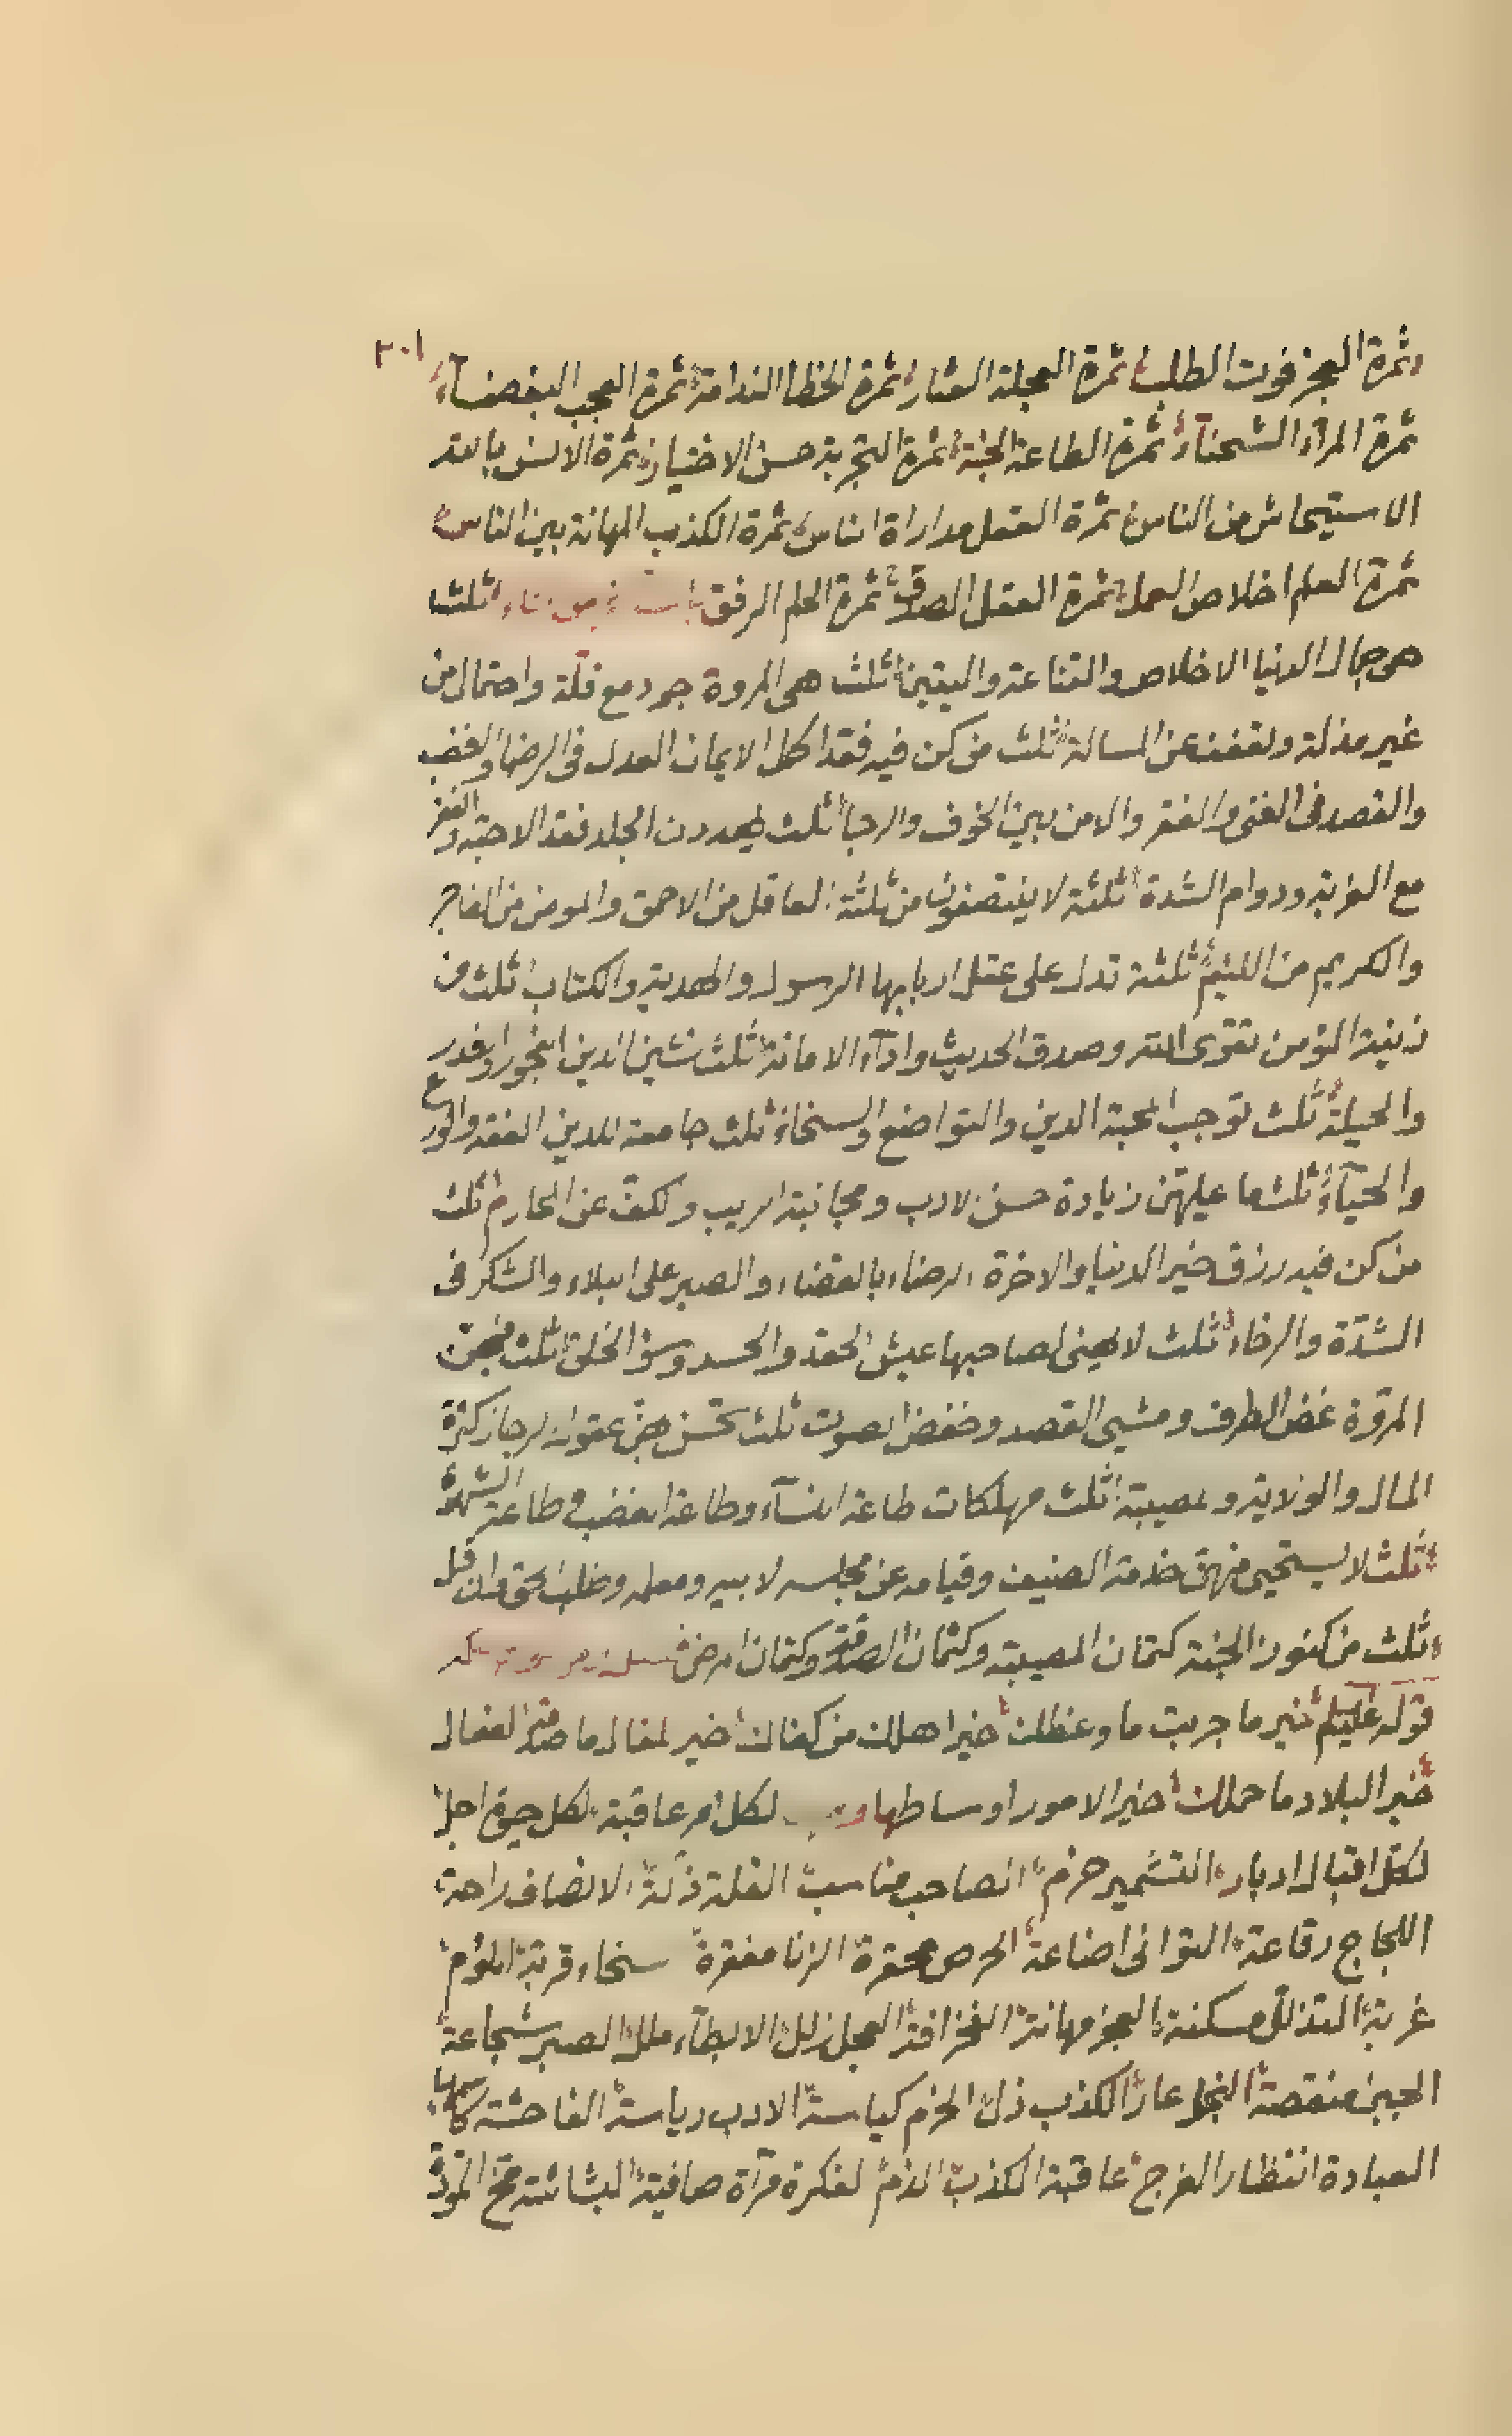 ٢٠١
ثمرة العجز فوت الطلب ثمرة العجلة العثار ثمرة الخطا الندامة ثمرة العجب البغضآء
ثمرة المرآء الشحنآء ثمرة الطاعة الجنة ثمرة التجربة حسن الاختيار ثمرة الانس بالله
الاستيحاش من الناس ثمرة العقل مداراة الناس ثمرة الكذب المهانة بين الناس
ثمرة العلم اخلاص العمل ثمرة العقل الصدق ثمرة الحلم الرفق ثلث
هى جمال الدنيا الاخلاص والقناعة واليقين ثلث هى المروة جود مع قلة واحتمال من
غير مذلة وتعفف عن المسالة ثلث من كن فيه فقد اكمل الايمان العدل فى الرضا والغضب
والقصد فى الغنى والفقر والامن بين الخوف والرجا ثلث يهددن الجلد فقد الاحبة والفقر
مع الغربة ودوام الشدة ثلثة لا ينتصفون من ثلثة العاقل من الاحمق والمومن من الفاجر
والكريم من اللئيم ثلثة تدل على عقل اربابها الرسول والهدية والكتاب ثلث من
زينة المؤمن تقوى الله وصدق الحديث وادآء الامانة ثلث تشين الدين الفجور والغدر
والحيلة ثلث توجب المحبة الدين والتواضع والسخاء ثلث جامعة للدين الفقه والورع
والحيآء ثلث ما عليهن زيادة حسن الادب ومجانبة الريب والكف عن المحارم ثلث
من كن فيه رزق خير الدنيا والاخرة الرضاء بالقضاء والصبر على البلاء والشكر فى
الشدة والرخاء ثلث لا يهنى لصاحبها عيش الحقد والحسد وسؤ الخلق ثلث فيهن
المروة غض الطرف ومشى القصد وخفض الصوت ثلث تمتحن بهن عقول الرجال كثرة
المال والولاية والمصيبة ثلث مهلكات طاعة النسآء وطاعة الغضب وطاعة الشهوة
ثلث لا يستحيى منهن خدمة الضيف وقيامه عن مجلسه لابيه ومعلمه وطلب الحق وان قل
ثلث من كنوز الجنة كتمان المصيبة وكتمان الصدقة وكتمان المرض
قوله عليلم خير ما جربت ما وعظك خير اهلك من كفاك خير المقال ما صدقه الفعال
خير البلاد ما حملك خير الامور اوساطها لكل امر عاقبة لكل حى اجل
لكل اقبال ادبار التشمير حزم الصاحب مناسب القلة ذلة الانصاف راحة
اللجاج رقاعة التوانى اضاعة الحرص محقرة الزنا مفقرة سخاء قربة اللؤم
غربة التذلل مسكنة العجز مهانة العجل زلل الابطآء ملل الصبر شجاعة
الجبن منقصة البخل عار الكذب ذل الحزم كياسة الادب رياسة الفاحشة كاسمها
العبادة انتظار الفرج عاقبة الكذب الذم الفكرة مرآة صافية البشاشة فخ المودة